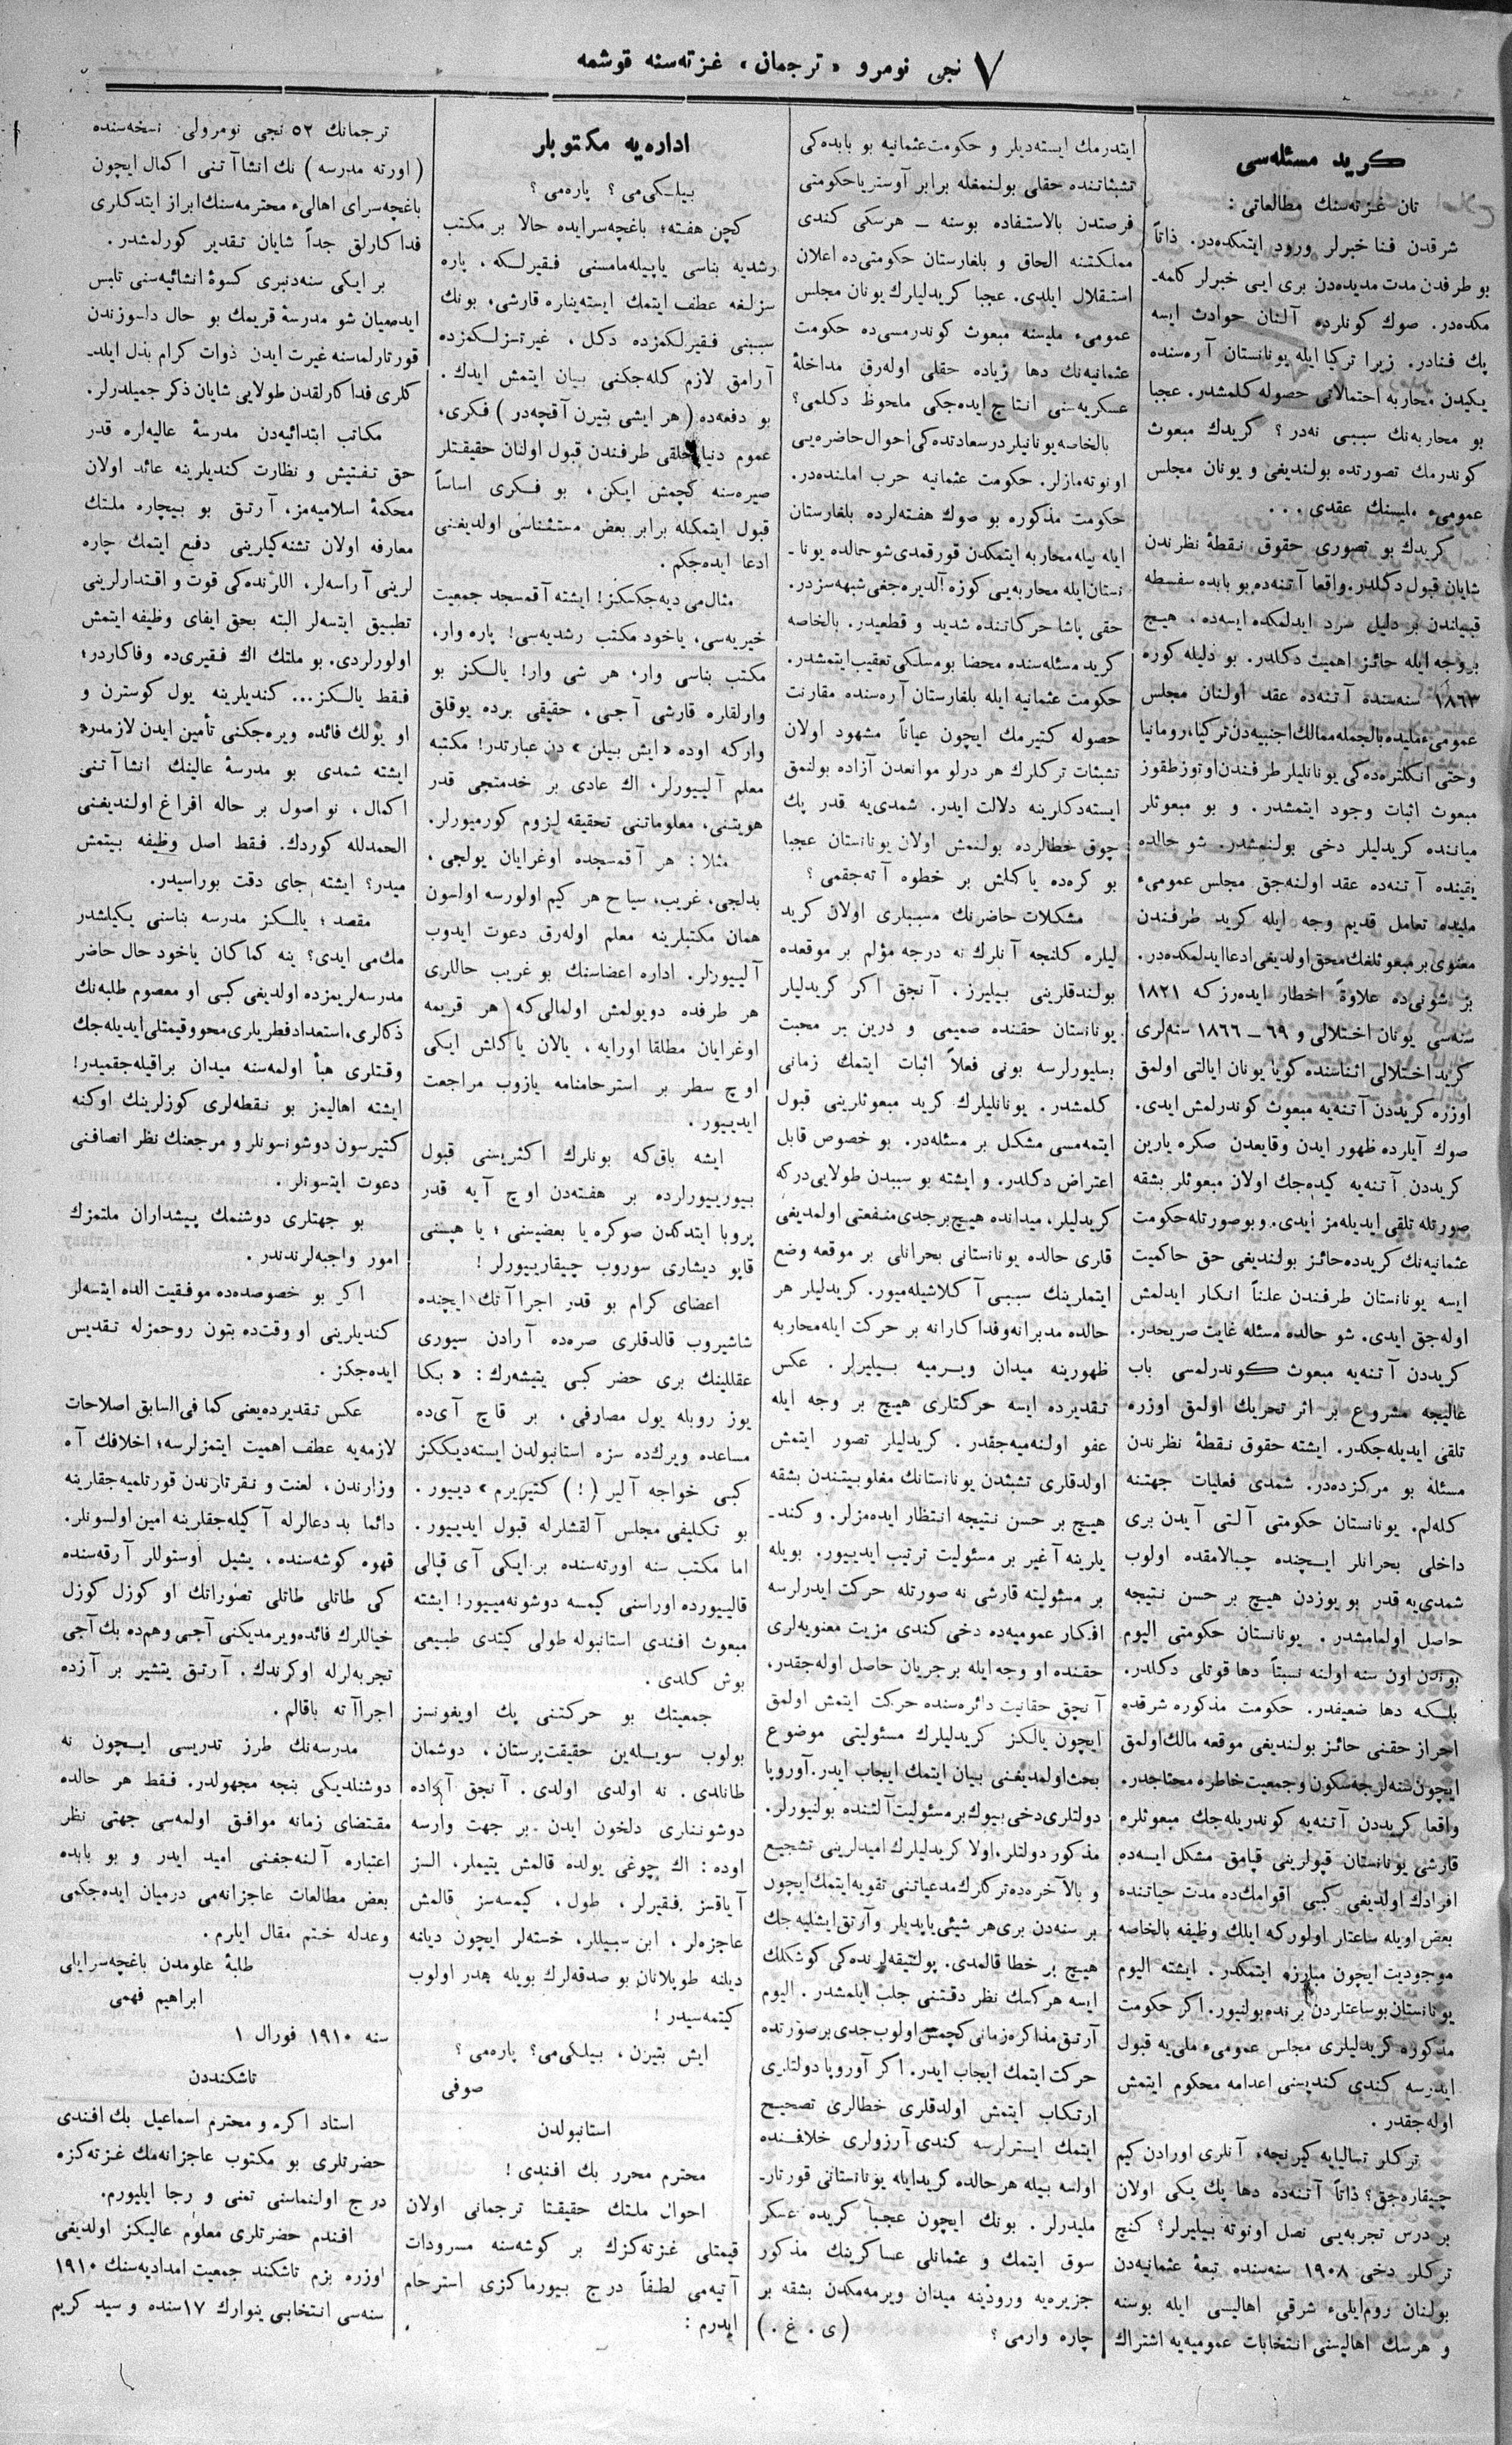 ۷ نجی نومرو «ترجمان» غزته‌سنه قوشمه
كريد مسئله‌سی
تان غزته‌سنك مطالعاتی :
شرقدن فنا خبرلر ورود ايتمكده‌در. ذاتاً
بو طرفدن مدت مديده‌دن بری ايی خبرلر كلمه‌ـ
مكده‌در. صوك كونلرده آلنان حوادث ايسه
پك فنادر. زيرا تركيا ايله يونانستان آره‌سنده
يكيدن محاربه احتمالاتی حصوله كلمشدر. عجبا
بو محاربه‌نك سببی نه‌در؟ گريدك مبعوث
كوندرمك تصورتده بولنديغی و يونان مجلس
عمومیء مليسنك عقدی . . .
كريدك بو تصوری حقوق نقطۀ نظرندن
شايان قبول دكلدر. واقعا آتنه‌ده بو بابده سفسطه
قبيلندن بر دليل سرد ايدلمكده ايسه‌ده، هيچ
بروجه ايله حائز اهميت دكلدر. بو دليله كوره
۱۸٦۳ سنه‌سنده آتنه‌ده عقد اولنان مجلس
عمومیء مليده بالجمله ممالك اجنبيه‌دن تركيا، رومانيا
وحتی انكلتره‌ده‌كی يونانليلر طرفندن اوتوز طقوز
مبعوث اثبات وجود ايتمشدر. و بو مبعوثلر
مياننده كريدليلر دخی بولنمشدر. شو حالده
يقينده آتنه‌ده عقد اولنه‌جق مجلس عمومیء
مليده تعامل قديم وجه ايله كريد طرفندن
معنوی بر مبعوثلغك محق اولديغی ادعا ايدلمكده‌در.
بز شونی‌ده علاوةً اخطار ايده‌رز كه ۱۸۲۱
سنه‌سی يونان اختلالی و ٦۹ – ۱۸٦٦ سنه‌لری
كريد اختلالی اثناسنده كويا يونان ايالتی اولمق
اوزره كريددن آتنه‌يه مبعوث كوندرلمش ايدی.
صوك آيارده ظهور ايدن وقايعدن صكره يارين
كريددن آتنه‌يه كيده‌جك اولان مبعوثلر بشقه
صورتله تلقی ايديله‌مز ايدی. و بو صورتله حكومت
عثمانيه‌نك كريدده حائز بولنديغی حق حاكميت
ايسه يونانستان طرفندن علناً انكار ايدلمش
اوله‌جق ايدی. شو حالده مسئله غايت صريحدر.
كريددن آتنه‌يه مبعوث كوندرلمسی باب
عاليجه مشروع بر اثر تحريك اولمق اوزره
تلقی ايديله‌جكدر. ايشته حقوق نقطۀ نظرندن
مسئله بو مركزده‌در. شمدی فعليات جهتنه
كله‌لم. يونانستان حكومتی آلتی آيدن بری
داخلی بحرانلر ايچنده چبالامقده اولوب
شمدی‌يه قدر بو يوزدن هيچ بر حسن نتيجه
حاصل اولمامشدر. يونانستان حكومتی اليوم
بوندن اون سنه اولنه نسبتاً دها قوتلی دكلدر.
بلكه دها ضعيفدر. حكومت مذكوره شرقده
احراز حقنی حائز بولنديغی موقعه مالك اولمق
ايچون سنه‌لرجه سكون و جمعيت خاطره محتاجدر.
واقعا كريددن آتنه‌يه كوندريله‌جك مبعوثلره
قارشی يونانستان قپولرينی قپامق مشكل ايسه‌ده
افرادك اولديغی كبی اقوامك‌ده مدت حياتنده
بعض اويله ساعتلر اولور كه ايلك وظيفه بالخاصه
موجوديت ايچون مبارزه ايتمكدر. ايشته اليوم
يونانستان بو ساعتلردن برنده بولنيور. اكر حكومت
مذكوره كريدليلری مجلس عمومیء ملی‌يه قبول
ايدرسه كندی كنديسنی اعدامه محكوم ايتمش
اوله‌جقدر.
تركلر تساليايه كيرنجه، آنلری اورادن كيم
چيقاره‌جق؟ ذاتاً آتنه‌ده دها پك يكی اولان
بر درس تجربه‌يی نصل اونوته بيليرلر؟ كنج
تركلر دخی ۱۹۰۸ سنه‌سنده تبعۀ عثمانيه‌دن
بولنان روم‌ايلیء شرقی اهاليسی ايله بوسنه
و هرسك اهاليسنی انتخابات عموميه‌يه اشتراك
ايتدرمك ايسته‌ديلر و حكومت عثمانيه بو بابده‌كی
تشبثاتنده حقلی بولنمغله برابر آوستريا حكومتی
فرصتدن بالاستفاده بوسنه – هرسكی كندی
مملكتنه الحاق و بلغارستان حكومتی‌ده اعلان
استقلال ايلدی. عجبا كريدليلرك يونان مجلس
عمومیء مليسنه مبعوث كوندرمسی‌ده حكومت
عثمانيه‌نك دها زياده حقلی اوله‌رق مداخلۀ
عسكريه‌سنی انتاج ايده‌جكی ملحوظ دكلمی؟
بالخاصه يونانيلر درسعادتده‌كی احوال حاضره‌يی
اونوته‌مازلر. حكومت عثمانيه حرب املنده‌در.
حكومت مذكوره بو صوك هفته‌لرده بلغارستان
ايله بيله محاربه ايتمكدن قورقمدی شو حالده يونا-
نستان ايله محاربه‌يی كوزه آلديره‌جغی شبهه‌سزدر.
حقی پاشا حركاتنده شديد و قطعيدر. بالخاصه
كريد مسئله‌سنده محضا بو مسلكی تعقيب ايتمشدر.
حكومت عثمانيه ايله بلغارستان آره‌سنده مقارنت
حصوله كتيرمك ايچون عياناً مشهود اولان
تشبثات تركلرك هر درلو موانعدن آزاده بولنمق
ايسته‌دكلرينه دلالت ايدر. شمدی‌يه قدر پك
چوق خطالرده بولنمش اولان يونانستان عجبا
بو كره‌ده ياكلش بر خطوه آته‌جقمی؟
مشكلات حاضرنك مسببلری اولان كريد
ليلره كلنجه آنلرك نه درجه مؤلم بر موقعده
بولندقلرينی بيليرز. آنجق اكر گريدليار
يونانستان حقنده صميمی و درين بر محبت
بسليورلرسه بونی فعلاً اثبات ايتمك زمانی
كلمشدر. يونانليلرك كريد مبعوثلرينی قبول
ايتمه‌مسی مشكل بر مسئله‌در. بو خصوص قابل
اعتراض دكلدر. و ايشته بو سببدن طولايی‌دركه
كريدليلر، ميدانده هيچ بر جدی منفعتی اولمديغی
قاری حالده يونانستانی بحرانلی بر موقعه وضع
ايتملرينك سببی آكلاشيله‌ميور. كريدليلر هر
حالده مدبرانه و فداكارانه بر حركت ايله محاربه
ظهورينه ميدان ويرميه بيليرلر. عكس
تقديرده ايسه حركتلری هيچ بر وجه ايله
عفو اولنه‌ميه‌جقدر. كريدليلر تصور ايتمش
اولدقلری تشبثدن يونانستانك مغلوبيتندن بشقه
هيچ بر حسن نتيجه انتظار ايده‌مزلر. و كند-
يلرينه آغير بر مسئوليت ترتيب ايدييور. بويله
بر مسئوليته قارشی نه صورتله حركت ايدرلرسه
افكار عموميه‌ده دخی كندی مزيت معنويه‌لری
حقنده او وجه ايله بر جريان حاصل اوله‌جقدر.
آنجق حقانيت دائره‌سنده حركت ايتمش اولمق
ايچون يالكز كريدليلرك مسئوليتی موضوع
بحث اولمديغنی بيان ايتمك ايجاب ايدر. آوروپا
دولتلری دخی بيوك بر مسئوليت آلتنده بولنيورلر.
مذكور دولتلر، اولا كريدليلرك اميدلرينی تشجيع
و بالآخره‌ده تركلرك مدعياتنی تقويه ايتمك ايچون
بر سنه‌دن بری هر شيئی ياپديلر و آرتق ايشليه‌جك
هيچ بر خطا قالمدی. پولتيقه‌لرنده‌كی كوشكلك
ايسه هركسك نظر دقتنی جلب ايلمشدر. اليوم
آرتق مذاكره زمانی كچمش اولوب جدی بر صورتده
حركت ايتمك ايجاب ايدر. اكر آوروپا دولتلری
ارتكاب ايتمش اولدقلری خطالری تصحيح
ايتمك ايسترلرسه كندی آرزولری خلافنده
اولسه بيله هر حالده كريد ايله يونانستانی قورتارـ
مليدرلر. بونك ايچون عجبا كريده عسكر
سوق ايتمك و عثمانلی عساكرينك مذكور
جزيره‌يه ورودينه ميدان ويرمه‌مكدن بشقه بر
چاره وارمی؟ (ی. غ.)
اداره‌يه مكتوبلر
بيلكی‌می؟ پاره‌می؟
كچن هفته؛ باغچه‌سرايده حالا بر مكتب
رشديه بناسی ياپيله‌مامسنی فقيرلكه، پاره
سزلغه عطف ايتمك ايسته‌ينلره قارشی، بونك
سببنی فقيرلكمزده دكل، غيرتسزلكمزده
آرامق لازم كله‌جكنی بيان ايتمش ايدك.
بو دفعه‌ده (هر ايشی بتيرن آقچه‌در) فكری،
عموم دنيا خلقی طرفندن قبول اولنان حقيقتلر
صيره‌سنه كچمش ايكن، بو فكری اساساً
قبول ايتمكله برابر بعض مستثناسی اولديغنی
ادعا ايده‌جكم.
مثال‌می ديه‌جكسكز! ايشته آقمسجد جمعيت
خيريه‌سی، ياخود مكتب رشديه‌سی! پاره وار،
مكتب بناسی وار، هر شی وار! يالكز بو
وارلقلره قارشی آجی، حقيقی برده يوقلق
واركه اوده «ايش بيلن» دن عبارتدر! مكتبه
معلم آلييورلر، اك عادی بر خدمتجی قدر
هويتنی، معلوماتنی تحقيقه لزوم كورميورلر.
مثلا: هر آقمسجده اوغرايان يولجی،
بدلجی، غريب، سياح هر كيم اولورسه اولسون
همان مكتبلرينه معلم اوله‌رق دعوت ايدوب
آلييورلر. اداره اعضاسنك بو غريب حاللری
هر طرفده دويولمش اولمالی‌كه هر قريمه
اوغرايان مطلقا اورايه، يالان ياكلش ايكی
اوچ سطر بر استرحامنامه يازوب مراجعت
ايدييور.
ايشه باق‌كه بونلرك اكثريسنی قبول
بيورييورلرده بر هفته‌دن اوچ آيه قدر
پروبا ايتدكدن صوكره يا بعضيسنی؛ يا هپسنی
قاپو ديشاری سوروب چيقارييورلر!
اعضای كرام بو قدر اجراآتك ايچنده
شاشيروب قالدقلری صره‌ده آرادن سيوری
عقللينك بری حضر كبی يتيشه‌رك: «بكا
يوز روبله يول مصارفی، بر قاچ آی‌ده
مساعده ويرك‌ده سزه استانبولدن ايسته‌ديككز
كبی خواجه آلير (!) كتيريرم» دييور.
بو تكليفی مجلس آلقشلرله قبول ايدييور.
اما مكتب سنه اورته‌سنده بر ايكی آی قپالی
قالييورده اوراسنی كيمسه دوشونه‌مييور! ايشته
مبعوث افندی استانبوله طولی كيتدی طبيعی
بوش كلدی.
جمعيتك بو حركتنی پك اويغونسز
بولوب سويله‌ين حقيقت‌پرستان، دوشمان
طانلدی. نه اولدی اولدی. آنجق آراده
دوشونناری دلخون ايدن بر جهت وارسه
اوده: اك چوغی يولده قالمش يتيملر، السز
آياقسز فقيرلر، طول، كيمسه‌سز قالمش
عاجزه‌لر، ابن سبيللر، خسته‌لر ايچون ديلنه
ديلنه طوپلانان بو صدقه‌لرك بويله هدر اولوب
كيتمه‌سيدر!
ايش بتيرن، بيلكی‌می؟ پاره‌می؟
صوفی
استانبولدن
محترم محرر بك افندی!
احوال ملتك حقيقتا ترجمانی اولان
قيمتلی غزته‌كزك بر كوشه‌سنه مسرودات
آتيه‌می لطفاً درج بيورماكزی استرحام
ايدرم:
ترجمانك ۵۲ نجی نومرولی نسخه‌سنده
(اورته مدرسه) نك انشاآتنی اكمال ايچون
باغچه‌سرای اهالیء محترمه‌سنك ابراز ايتدكلری
فداكارلق جداً شايان تقدير كورلمشدر.
بر ايكی سنه‌دنبری كسوۀ انشائيه‌سنی تلبس
ايده‌ميان شو مدرسۀ قريمك بو حال دلسوزندن
قورتارلمه‌سنه غيرت ايدن ذوات كرام بذل ايلد-
كلری فداكارلقدن طولايی شايان ذكر جميلدرلر.
مكاتب ابتدائيه‌دن مدرسۀ عاليه‌لره قدر
حق تفتيش و نظارت كنديلرينه عائد اولان
محكمۀ اسلاميه‌مز، آرتق بو بيچاره ملتك
معارفه اولان تشنه‌كيلرينی دفع ايتمك چاره
لرينی آراسه‌لر، اللرنده‌كی قوت و اقتدارلرينی
تطبيق ايتسه‌لر البته بحق ايفای وظيفه ايتمش
اولورلردی. بو ملتك اك فقيری‌ده وفاكاردر؛
فقط يالكز... كنديلرينه يول كوسترن و
او يولك فائده ويره‌جكنی تأمين ايدن لازمدر.
ايشته شمدی بو مدرسۀ عالينك انشاآتنی
اكمال، نو اصول بر حاله افراغ اولنديغنی
الحمدلله كوردك. فقط اصل وظيفه بيتمش
ميدر؟ ايشته جای دقت بوراسيدر.
مقصد؛ يالكز مدرسه بناسنی يكيلشدر
مك‌می ايدی؟ ينه كماكان ياخود حال حاضر
مدرسه‌لريمزده اولديغی كبی او معصوم طلبه‌نك
ذكالری، استعداد فطريلری محو و قيمتلی ايديله‌جك
وقتلری هبأ اولمه‌سنه ميدان براقيله‌جقميدر!
ايشته اهاليمز بو نقطه‌لری كوزلرينك اوكنه
كتيرسون دوشونسونلر و مرجعنك نظر انصافنی
دعوت ايتسونلر.
بو جهتلری دوشنمك پيشداران ملتمزك
امور واجبه‌لرندندر.
اكر بو خصوصده‌ده موفقيت الده ايتسه‌لر
كنديلرينی او وقت‌ده بتون روحمزله تقديس
ايده‌جكز.
عكس تقديرده يعنی كما فی‌السابق اصلاحات
لازمه‌يه عطف اهميت ايتمزلرسه؛ اخلافك آه
وزارندن، لعنت و نفرتلرندن قورتلميه‌جقلرينه
دائما بد دعالرله آكيله‌جقلرينه امين اولسونلر.
قهوه كوشه‌سنده، يشيل اوستوللر آرقه‌سنده
كی طاتلی طاتلی تصوراتك او كوزل كوزل
خياللرك فائده ويرمديكنی آجی وهم‌ده بك آجی
تجربه‌لرله اوكرندك. آرتق يتشير بر آزده
اجراآته باقالم.
مدرسه‌نك طرز تدريسی ايچون نه
دوشنلديكی بنجه مجهولدر. فقط هر حالده
مقتضای زمانه موافق اولمه‌سی جهتی نظر
اعتباره آلنه‌جغنی اميد ايدر و بو بابده
بعض مطالعات عاجزانه‌می درميان ايده‌جكمی
وعدله ختم مقال ايلرم.
طلبۀ علومدن باغچه‌سرايلی
ابراهيم فهمی
سنه ۱۹۱۰ فورال ۱
تاشكنددن
استاد اكرم و محترم اسماعيل بك افندی
حضرتلری بو مكتوب عاجزانه‌مك غزته‌كزه
درج اولنماسنی تمنی و رجا ايليورم.
افندم حضرتلری معلوم عاليكز اولديغی
اوزره بزم تاشكند جمعيت امداديه‌سنك ۱۹۱۰
سنه‌سی انتخابی ينوارك ۱۷سنده و سيد كريم